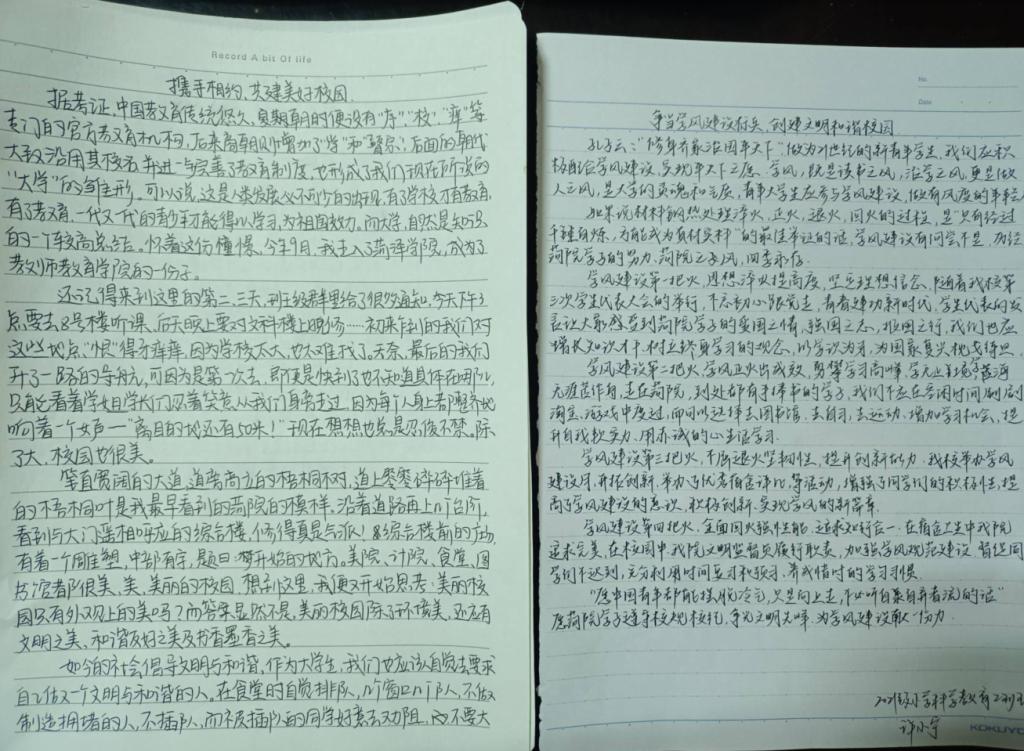 Record A bit Of life
携手相约,共建美好校园
据考证,中国教育传统悠久,夏朝的便设有"序""校""庠"等
专门的官方教育机构,后来商朝又增加了"学"和"瞽宗",后面的朝代
大致沿用其校名并进一步完善了教育制度,也形成了我们现在所说的
"大学"的雏形。可以说,这是人类发展必不可少的发现,有了学校才有教育,
有了教育,一代又一代的青少年才能得以学习,为祖国效力。而大学,自然是知识
的一个较高总结。怀着这份憧憬,今年9月,我走入了菏泽学院,成为了
教师教育学院的一份子。
还记得来到这里的第二、三天,班主任群里给了很多通知,今天下午3
点要去8号楼听课,后天晚上要对文科楼上晚修……初来乍到的我们对
这些地点"恨"得牙痒痒,因为学校太大,也太难找了。无奈,最后的我们
开了一路的导航,可因为是第一次去,即便是快到了也不知道具体在哪儿,
只能看着学姐学长们忍着笑意从我们身旁走过,因为每个人身上都整齐地
响着一个女声—"离目的地还有50米!"现在想想也总是忍俊不禁。除
了大,校园也很美。
笔直宽阔的大道,道旁高立的梧桐树,道上零零碎碎堆着
的梧桐叶是我最早看到的菏院的模样。沿着道路再上几台阶,
看到与大门遥相呼应的综合楼,修得真是气派!综合楼前的广场
有着一个周雕塑,中部有字,题曰:梦开始的地方。美院、计院、食堂、图
书馆都很美,美,美丽的校园,想到这里,我便又开始思考:美丽校
园只有外观上的美吗?而答案显然不是,美丽校园除了环境美,还应有
文明之美、和谐友好之美及书香墨香之美。
如今的社会倡导文明与和谐,作为大学生,我们也应该自觉去要求
自己做一个文明与和谐的人。在食堂的自觉排队,几个窗口几队人,不做
制造拥堵的人,不插队,而被插队的同学好意去劝阻,不要大
No.
Date
争当学风建设标兵,创建文明和谐校园
孔子云:"修身齐家治国平天下"做为21世纪的新青年学生,我们应积
极配合学风建设,实现平天下之愿。学风,既是读书之风,治学之风,更是做
人之风,是大学的灵魂和气质,青年大学生应参与学风建设,做有风度的年轻人
如果说材料钢热处理淬火,正火,退火,回火的过程,是"只有经过
千锤百炼,方能成为有材实料"的最佳举证的话,学风建设有何尝不是,历经
菏院学子的努力,菏院之学风,四季永存。
学风建设第一把火,思想淬火提高度,坚定理想信念,随着我校第
三次学生代表大会的举行,不忘初心跟党走,青春建功新时代,学生代表们发
言让大家感受到菏院学子的爱国之情,强国之志,报国之行,我们也应
增长知识才干,树立终身学习的观念,以学识为矛,为国家复兴挑战得胜。
学风建设第二把火,学风正火出成效,勇攀学习高峰,学无止境学海
无涯苦作舟,走在菏院,到处都有手捧书的学子,我们不应在空闲时间刷剧
淘宝,游戏中度过,而可以选择去图书馆,去自习,去运动,增加学习机会,提
升自我软实力,用赤诚的心去混学习。
学风建设第三把火,不应退火坚韧性,提升创新能力,我校举办学风
建设月,开拓创新,举办了优秀宿舍评比等活动,增强了同学们的积极性,提
高了学风建设的意识,积极创新,实现学风的新篇章。
学风建设第四把火,全面回火强性能,追求知行合一,在宿舍卫生中我院
追求完美,在校园中,我院文明监督员履行职责,加强学风规范建设,督促同
学们不迟到,充分利用时间复习和预习,养成惜时的学习习惯。
"愿中国青年都能摆脱冷气,只是向上走,不必听自暴自弃者流的话"
愿菏院学子遵守校规校纪,争先文明先锋,为学风建设献一份力
2021级小学科学教育2班
许小宇
KOKUYO